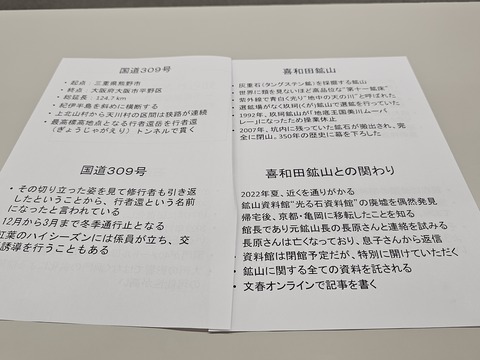 国道309号
・起点 三重県熊野市
・終点 大阪府大阪市平野区
・総延長 124.7km
・紀伊半島を斜めに横断する
・上北山村から天川村の区間は狭路が連続
・最高標高地点となる行者還岳を行者還
（ぎょうじゃがえり）トンネルで貫く
国道309号
・その切り立った姿を見て修行者も引き返
したということから、行者還という名前
になったと言われている
12月から3月まで冬季通行止となる
紅葉のハイシーズンには係員が立ち、交
誘導を行うこともある
喜和田鉱山
・灰重石（タングステン鉱）を採掘する鉱山
・世界に類を見ないほど高品位な"第十一鉱床"
・紫外線で青白く光り"地中の天の川"と呼ばれた
・選鉱場がなく玖珂(くが)鉱山で選鉱を行っていた
・1992年、玖珂鉱山が「地底王国美川ムーバ
レー」になったため操業休止
・2007年、坑内に残っていた鉱石が搬出され、完
全に閉山。350年の歴史に幕を下ろした
喜和田鉱山との関わり
2022年夏、近くを通りがかる
鉱山資料館"光る石資料館"の廃墟を偶然発見
帰宅後、京都・亀岡に移転したことを知る
館長であり元鉱山長の長原さんと連絡を試みる
長原さんは亡くなっており、息子さんから返信
・資料館は閉館予定だが、特別に開けていただく
・鉱山に関する全ての資料を託される
・文春オンラインで記事を書く